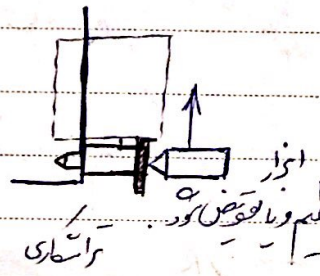 ابزار
یم و یا تعویض شود.
تراشکاری